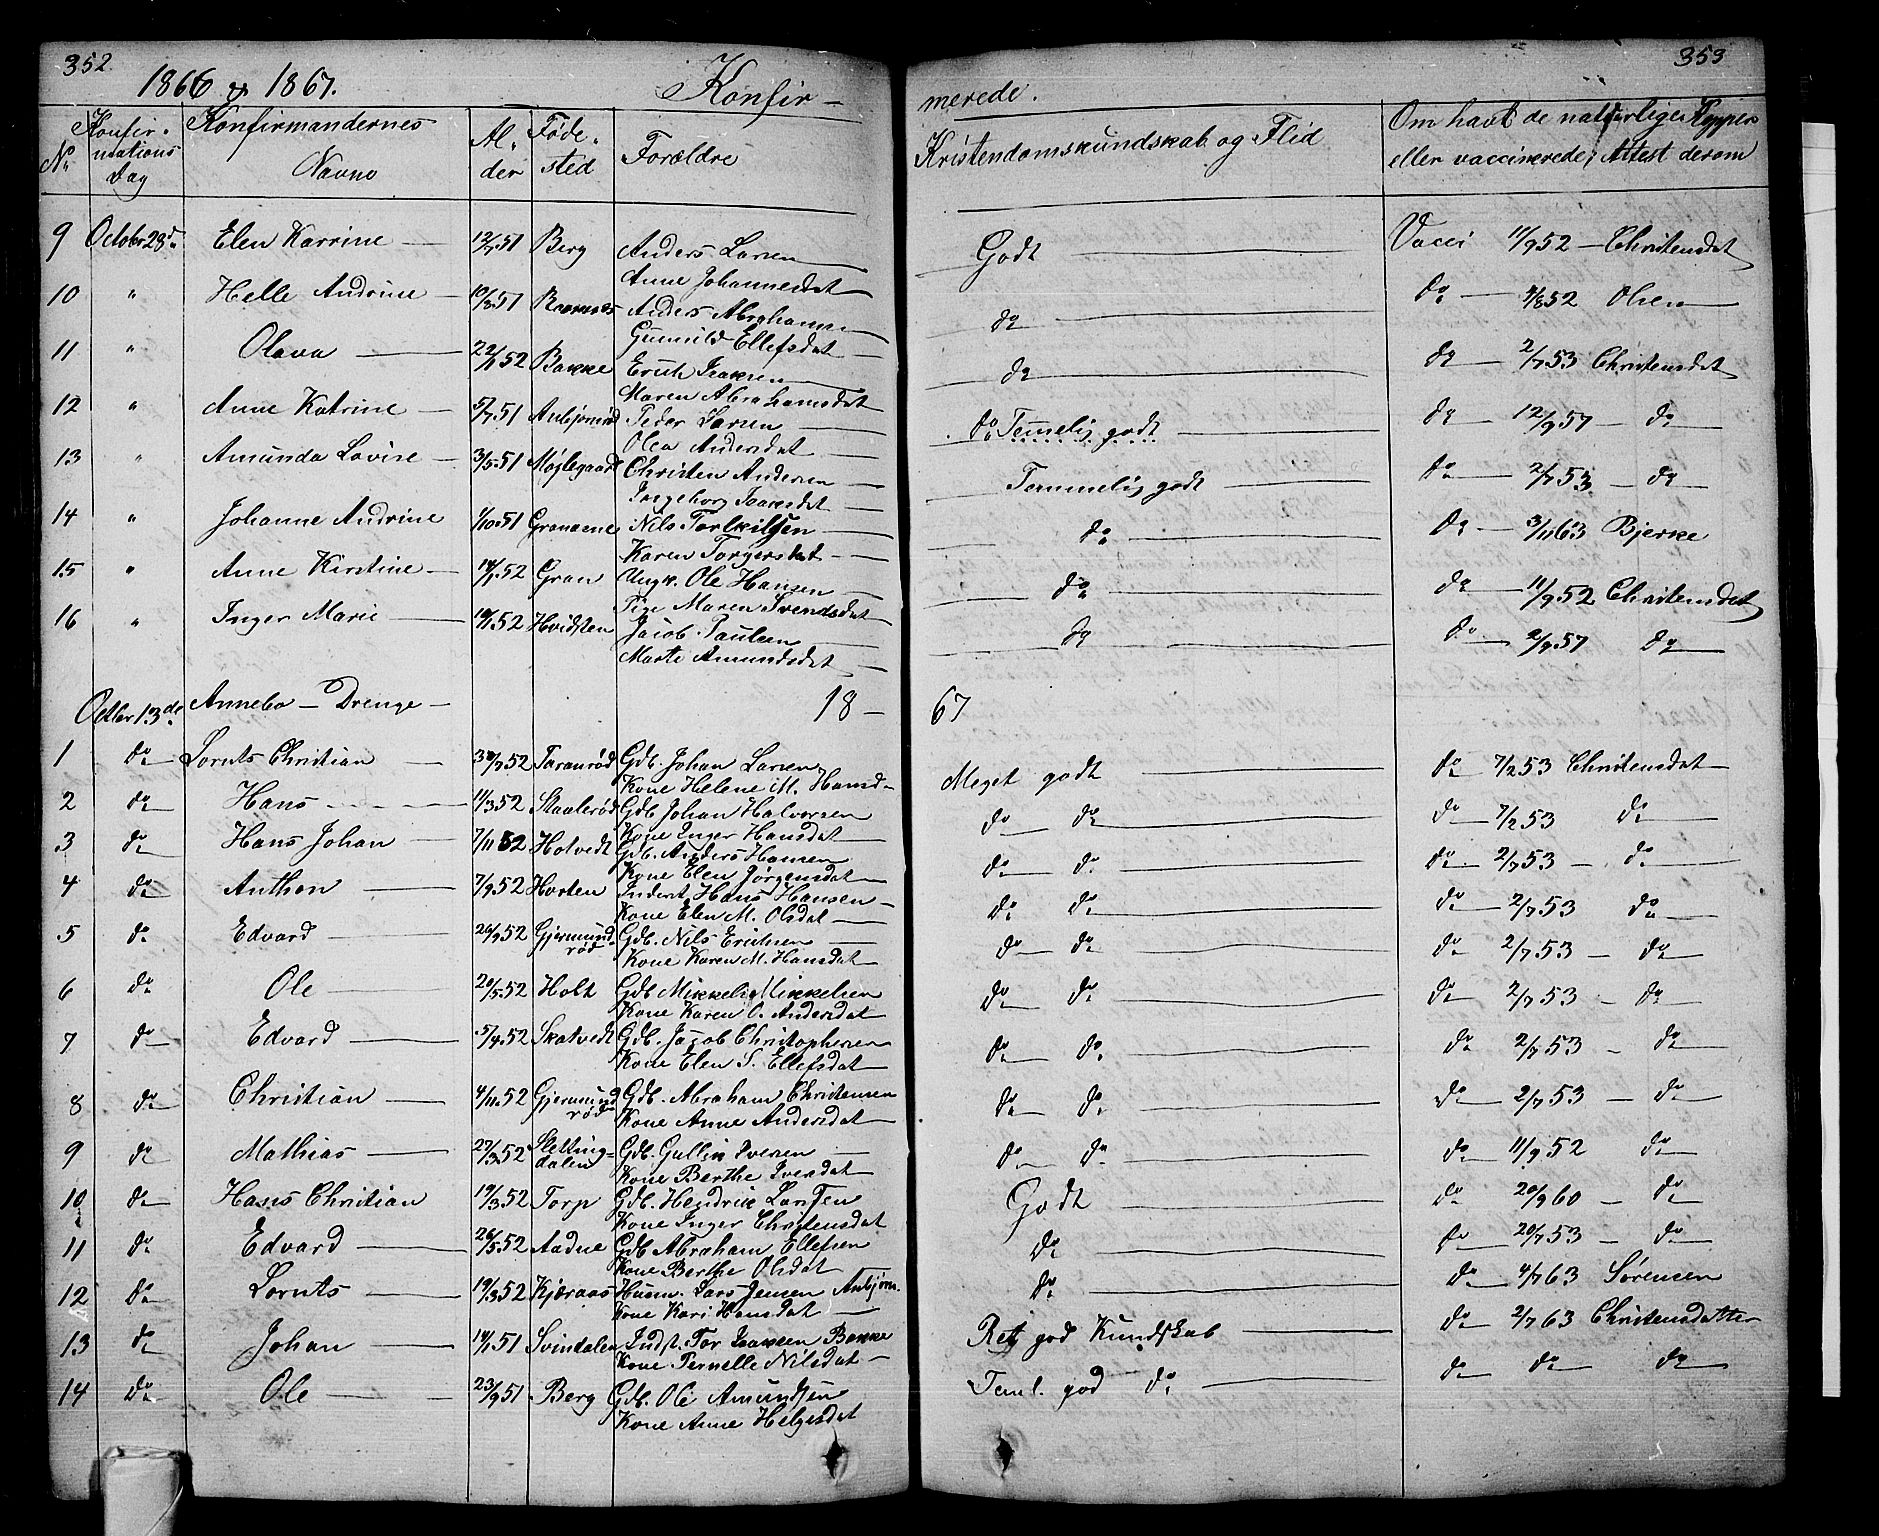 352.
1866 & 1867. Konfir-
No Konfir-mations Dag Konfirmandernes Navne Al-der Føde-sted Forældre
9 Octobr 28de Elen Karrine 12/7 51 Berg Anders Larsen
Anne Johannesdat
10 " Helle Andrine 10/8 51 Anders Abrahamsen
Gunnild Ellefsdat
11 " Olava 22/1 52 Bakke Erich Isaksen
Maren Abrahamsdat
12 " Anne Katrine 5/7 51 Anbjønrød Peder Larsen
Olea Andersdat
13 " Amunda Lovise 3/5 51 Møjlegaard Christen Andersen
Ingeborg Isaksdat
14 " Johanne Andrine 1/10 51 Granaene Nils Torkilsen
Karen Torgersdat
15 " Anne Kirstine 14/1 52 Gran Ungk. Ole Hansen
Pige Maren Svendsdat
16 " Inger Marie 19/1 52 Hvidsten Jacob Paulsen
Marte Amundsdat
Octbr 13de Annebo - Drenge 18-
1 do Lornts Christian 30/7 52 Taranrød Gdb. Johan Larsen
Kone Helene M. Hansd
2 do Hans 11/3 52 Staalerød Gdb. Johan Halvorsen
Kone Inger Hansdat
3 do Hans Johan 7/11 52 Holvedt Gdb. Anders Hansen
Kone Elen Jørgensdat
4 do Anthon 7/9 52 Horten Inderst Hans Hansen
Kone Elen M. Olsdat
5 do Edvard 26/9 52 Gjermund-rød Gdb. Nils Erichsen
Kone Karen M. Hansdat
6 do Ole 20/5 52 Holt Gdb Mikkel Mikkelsen
Kone Karen O. Andersdat
7 do Edvard 5/4 52 Skatvedt Gdb. Jacob Christophersen
Kone Elen S. Ellefsdat
8 do Christian 4/11 52 Gjermund rød Gdb. Abraham Christensen
Kone Anne Andersdat
9 do Mathias 29/3 52 Sletting-dalen Gdb. Gullik Iversen
Kone Berthe Iversdat
10 do Hans Christian 19/3 52 Torp Gdb. Hendrik Larsen
Kone Inger Christensdat
11 do Edvard 26/5 52 Aadne Gdb Abraham Ellefsen
Kone Berthe Olsdat
12 do Lornts 19/3 52 Kjæraas Husm. Lars Jensen Anbjørn.
Kone Kari Hansdat
13 do Johan 14/1 51 Svindalen Indst. Tor Isaksen Bakke
Kone Pernelle Nilsdat
14 do Ole 23/9 51 Berg Gdb. Ole Amundsen
Kone Anne Helgesdat
353
merede.
Kristendomskundskab og Flid Om havt de naturlige Kopper
eller vaccinerede, Attest derom
Godt Vacci 11/9 52 - Christensdat
do do 3/8 52 Olsen
do do 2/7 53 Christensdat
do Temelig godt do 12/9 57 do
Temmelig godt do 2/7 53 - do
do do 3/11 63 Bjerke
do do 11/9 52 Christensdat
do do 2/9 57 do
67
Meget godt do 7/2 53 Christensdat
do do do 7/2 53 do
do do do 2/7 53 - do
do do do 2/7 53 do
do do do 2/7 53 - do
do do do 2/7 53 - do
do do do 2/7 53 - do
do do do 2/7 53 - do
do do do 11/9 52 do
Godt do 20/9 60 - do
do do 20/7 53 - do
do do 4/7 63 Sørensen
Ret god Kundskab do 2/7 63 Christensdatter
Teml. god do do do do